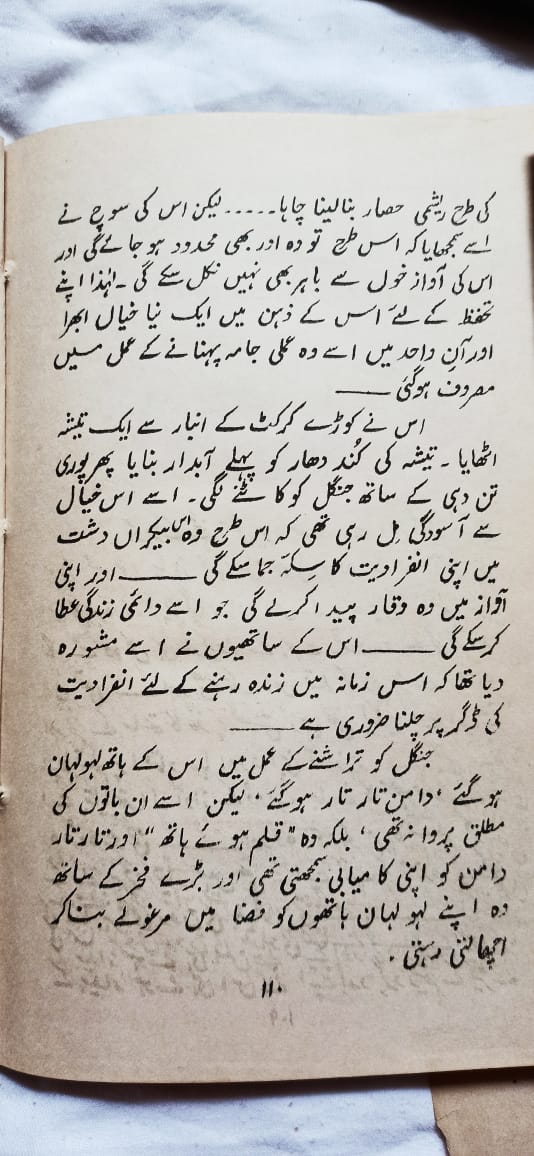 کی طرح ریشمی حصار بنا لینا چاہا۔۔۔۔۔ لیکن اس کی سوچ نے
اسے سمجھایا کہ اس طرح تو وہ اور بھی محدود ہو جائے گی اور
اس کی آواز خول سے باہر بھی نہیں نکل سکے گی ۔ لہٰذا اپنے
تحفظ کے لئے اس کے ذہن میں ایک نیا خیال ابھرا
اور آنِ واحد میں اسے وہ عملی جامہ پہنانے کے عمل میں
مصروف ہوگئی ——
اس نے کوڑے کرکٹ کے انبار سے ایک تیشہ
اٹھایا ۔ تیشہ کی کُند دھار کو پہلے آبدار بنایا پھر پوری
تن دہی کے ساتھ جنگل کو کاٹنے لگی ۔ اسے اس خیال
سے آسودگی مل رہی تھی کہ اس طرح وہ اس بیکراں دشت
میں اپنی انفرادیت کا سِکّہ جما سکے گی —— اور اپنی
آواز میں وہ وقار پیدا کرلے گی جو اسے دائمی زندگی عطا
کر سکے گی —— اس کے ساتھیوں نے اسے مشورہ
دیا تھا کہ اس زمانہ میں زندہ رہنے کے لئے انفرادیت
کی ڈگر پر چلنا ضروری ہے ——
جنگل کو تراشنے کے عمل میں اس کے ہاتھ لہولہان
ہوگئے ، دامن تار تار ہوگئے ، لیکن اسے ان باتوں کی
مطلق پروا نہ تھی ، بلکہ وہ "قلم ہوئے ہاتھ" اور تار تار
دامن کو اپنی کامیابی سمجھتی تھی اور بڑے فخر کے ساتھ
وہ اپنے لہو لہان ہاتھوں کو فضا میں مرغولے بنا کر
اچھالتی رہتی .
۱۱۰